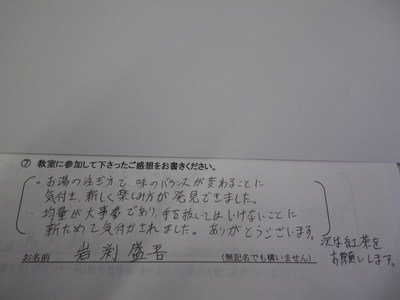 ⑦ 教室に参加して下さったご感想をお書きください。
・お湯の注ぎ方で、味のバランスが変わることに
気付き、新しく楽しみ方が発見できました。
・均量が大事であり、手を抜いてはいけないことに
新ためて気付かされました。ありがとうございます。
次は紅茶を
お願いします。
お名前 岩渕 盛吾 (無記名でも構いません)